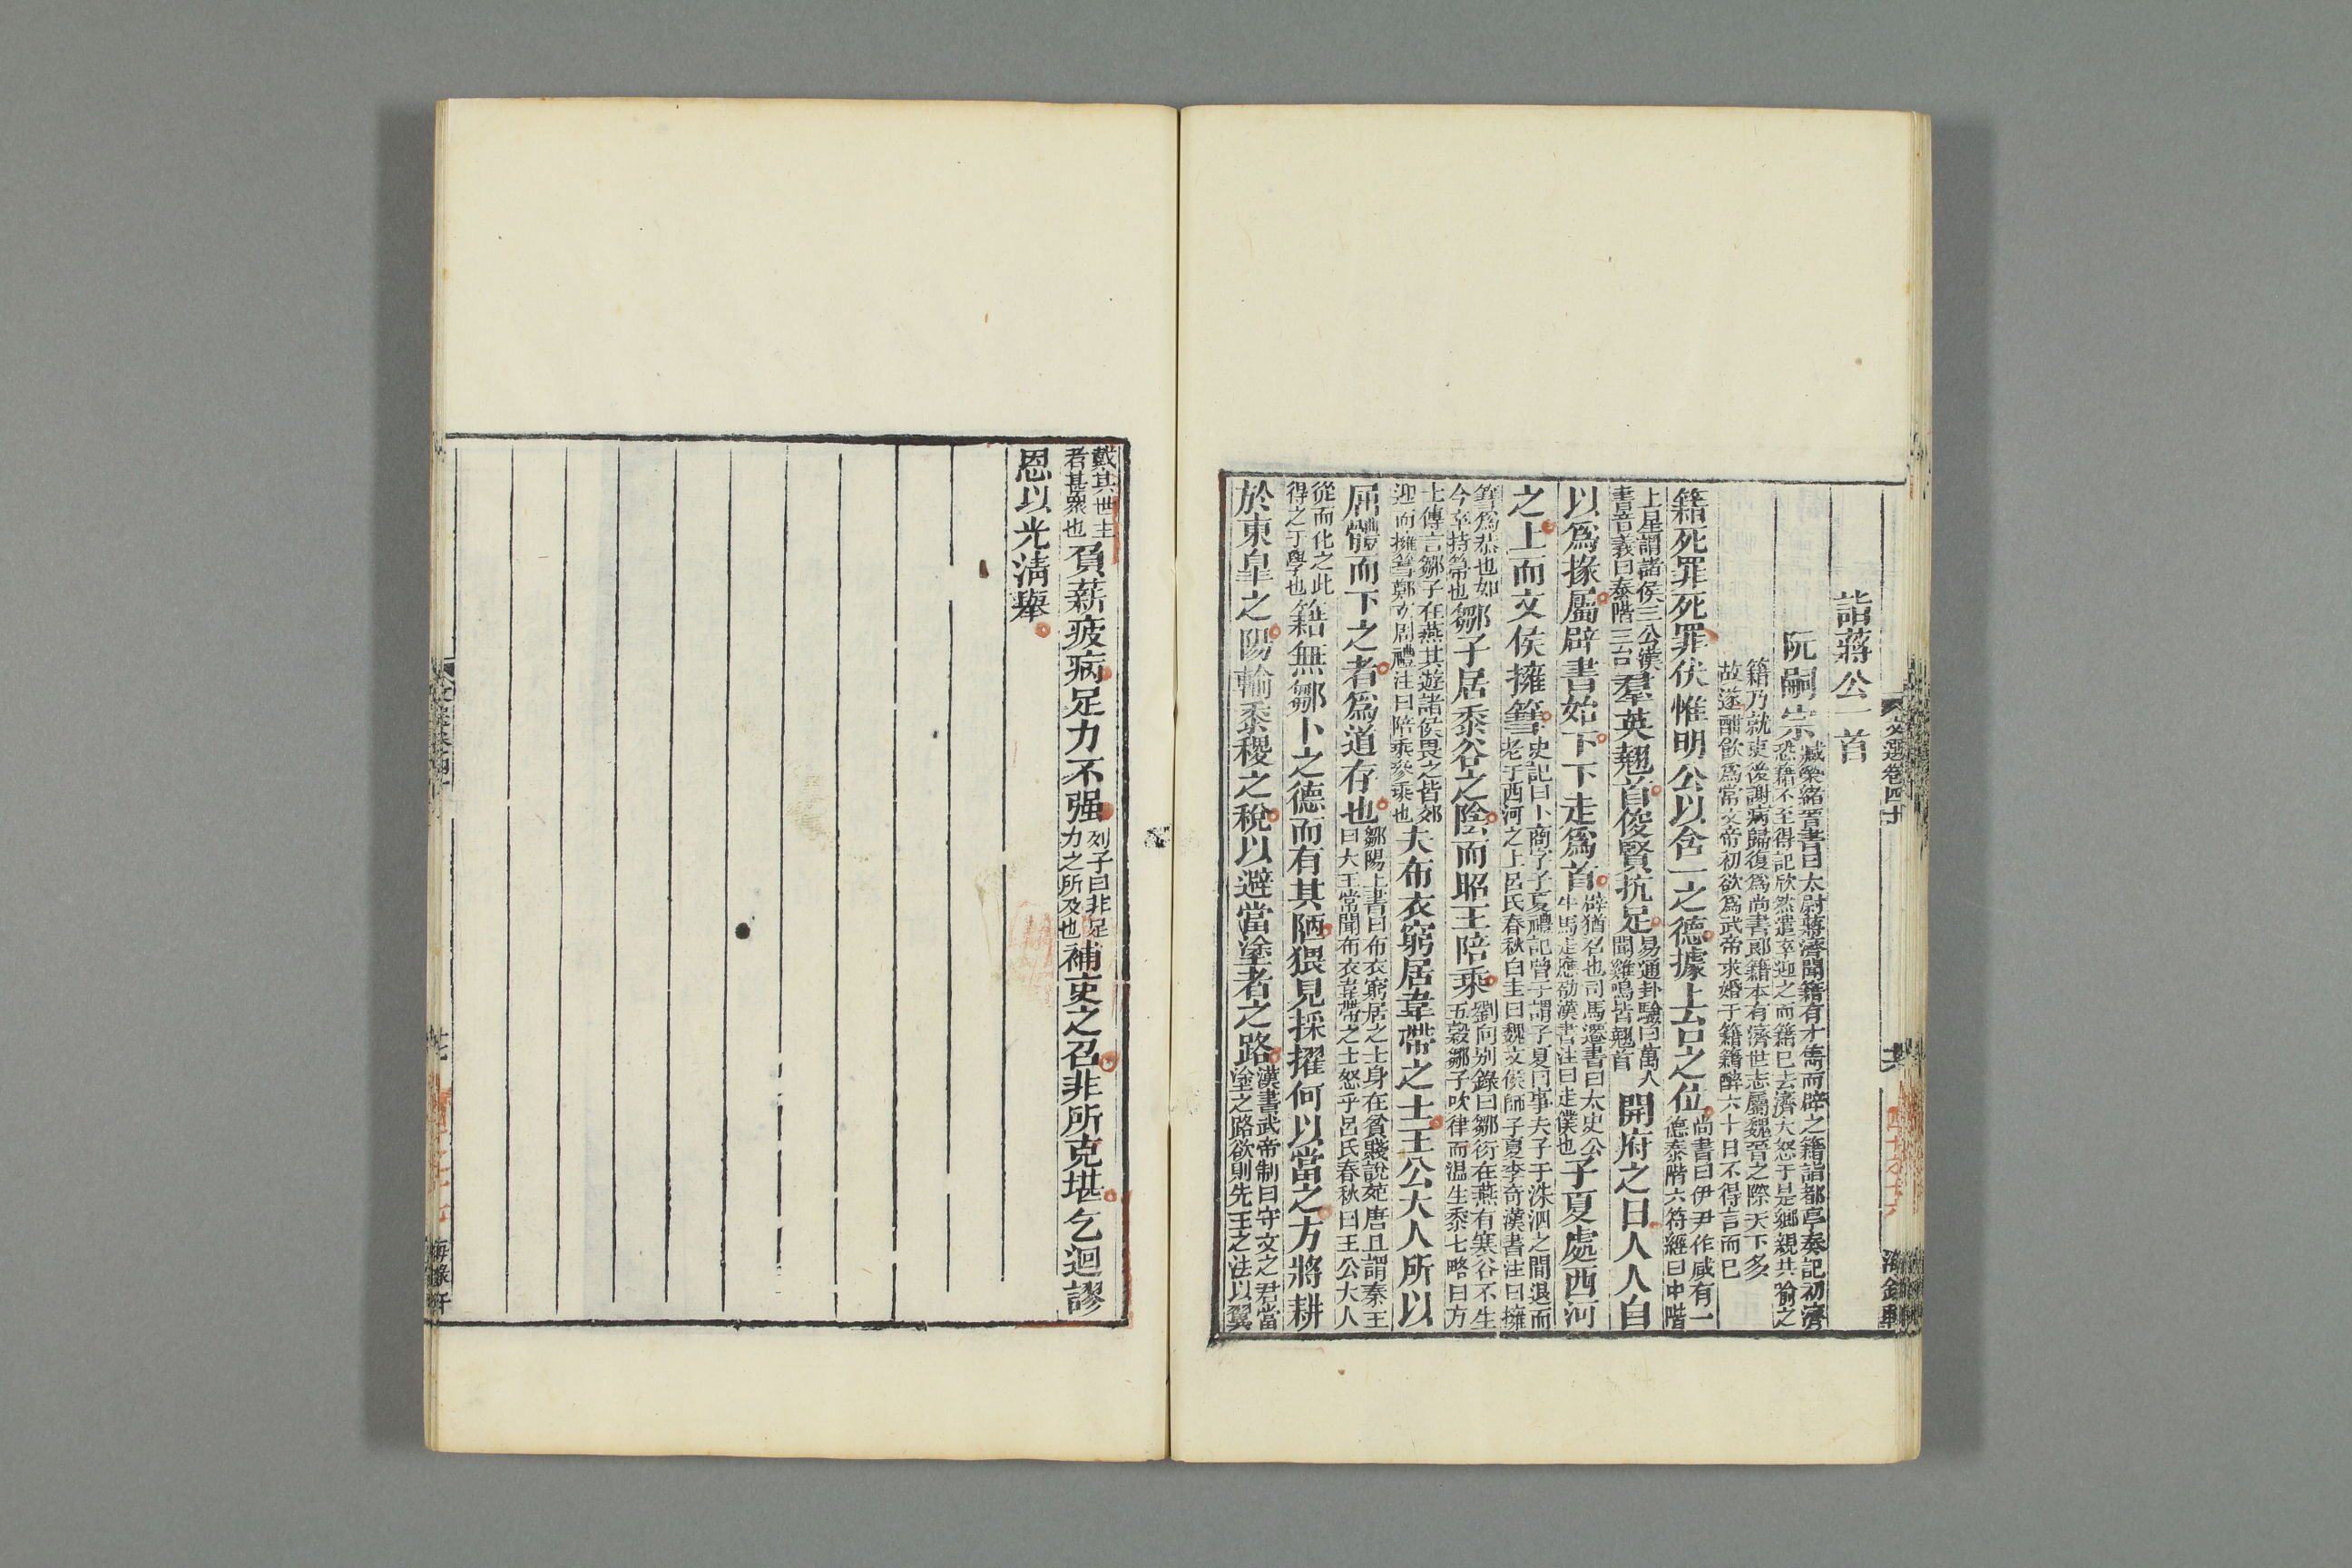 文選卷四十
詣蔣公一首
阮嗣宗臧榮緒晉書曰太尉蔣濟聞籍有才雋而辟之籍詣都亭奏記初濟
恐籍不至得記欣然遣卒迎之而籍已去濟大怒于是鄉親共喻之
籍乃就吏後謝病歸復爲尚書郎籍本有濟世志屬魏晉之際天下多
故遂酣飲爲常文帝初欲爲武帝求婚于籍籍醉六十日不得言而已
籍死罪死罪伏惟明公以含一之德據上台之位尚書曰伊尹作咸有一
德泰階六符經曰中階
上星謂諸侯三公漢
書音義曰泰階三台羣英翹首俊賢抗足易通卦驗曰萬人
聞雞鳴皆翹首開府之日人人自
以爲掾屬辟書始下下走爲首辟猶召也司馬遷書曰太史公
牛馬走應劭漢書注曰走僕也子夏處西河
之上而文侯擁篲史記曰卜商字子夏禮記曾子謂子夏曰事夫子于洙泗之間退而
老于西河之上呂氏春秋白圭曰魏文侯師子夏李奇漢書注曰擁
篲爲恭也如
今卒持箒也鄒子居黍谷之陰而昭王陪乘劉向别錄曰鄒衍在燕有寒谷不生
五穀鄒子吹律而温生黍七略曰方
士傳言鄒子在燕其遊諸侯畏之皆郊
迎而擁篲鄭玄周禮注曰陪乘參乘也夫布衣窮居韋帶之士王公大人所以
屈體而下之者爲道存也鄒陽上書曰布衣窮居之士身在貧賤說苑唐且謂秦王
曰大王常聞布衣韋帶之士怒乎呂氏春秋曰王公大人
從而化之此
得之于學也籍無鄒卜之德而有其陋猥見採擢何以當之方將耕
於東皐之陽輸黍稷之稅以避當塗者之路漢書武帝制曰守文之君當
塗之路欲則先王之法以翼
戴其世主
者甚衆也負薪疲病足力不强列子曰非足
力之所及也補吏之召非所克堪乞迴謬
恩以光清舉